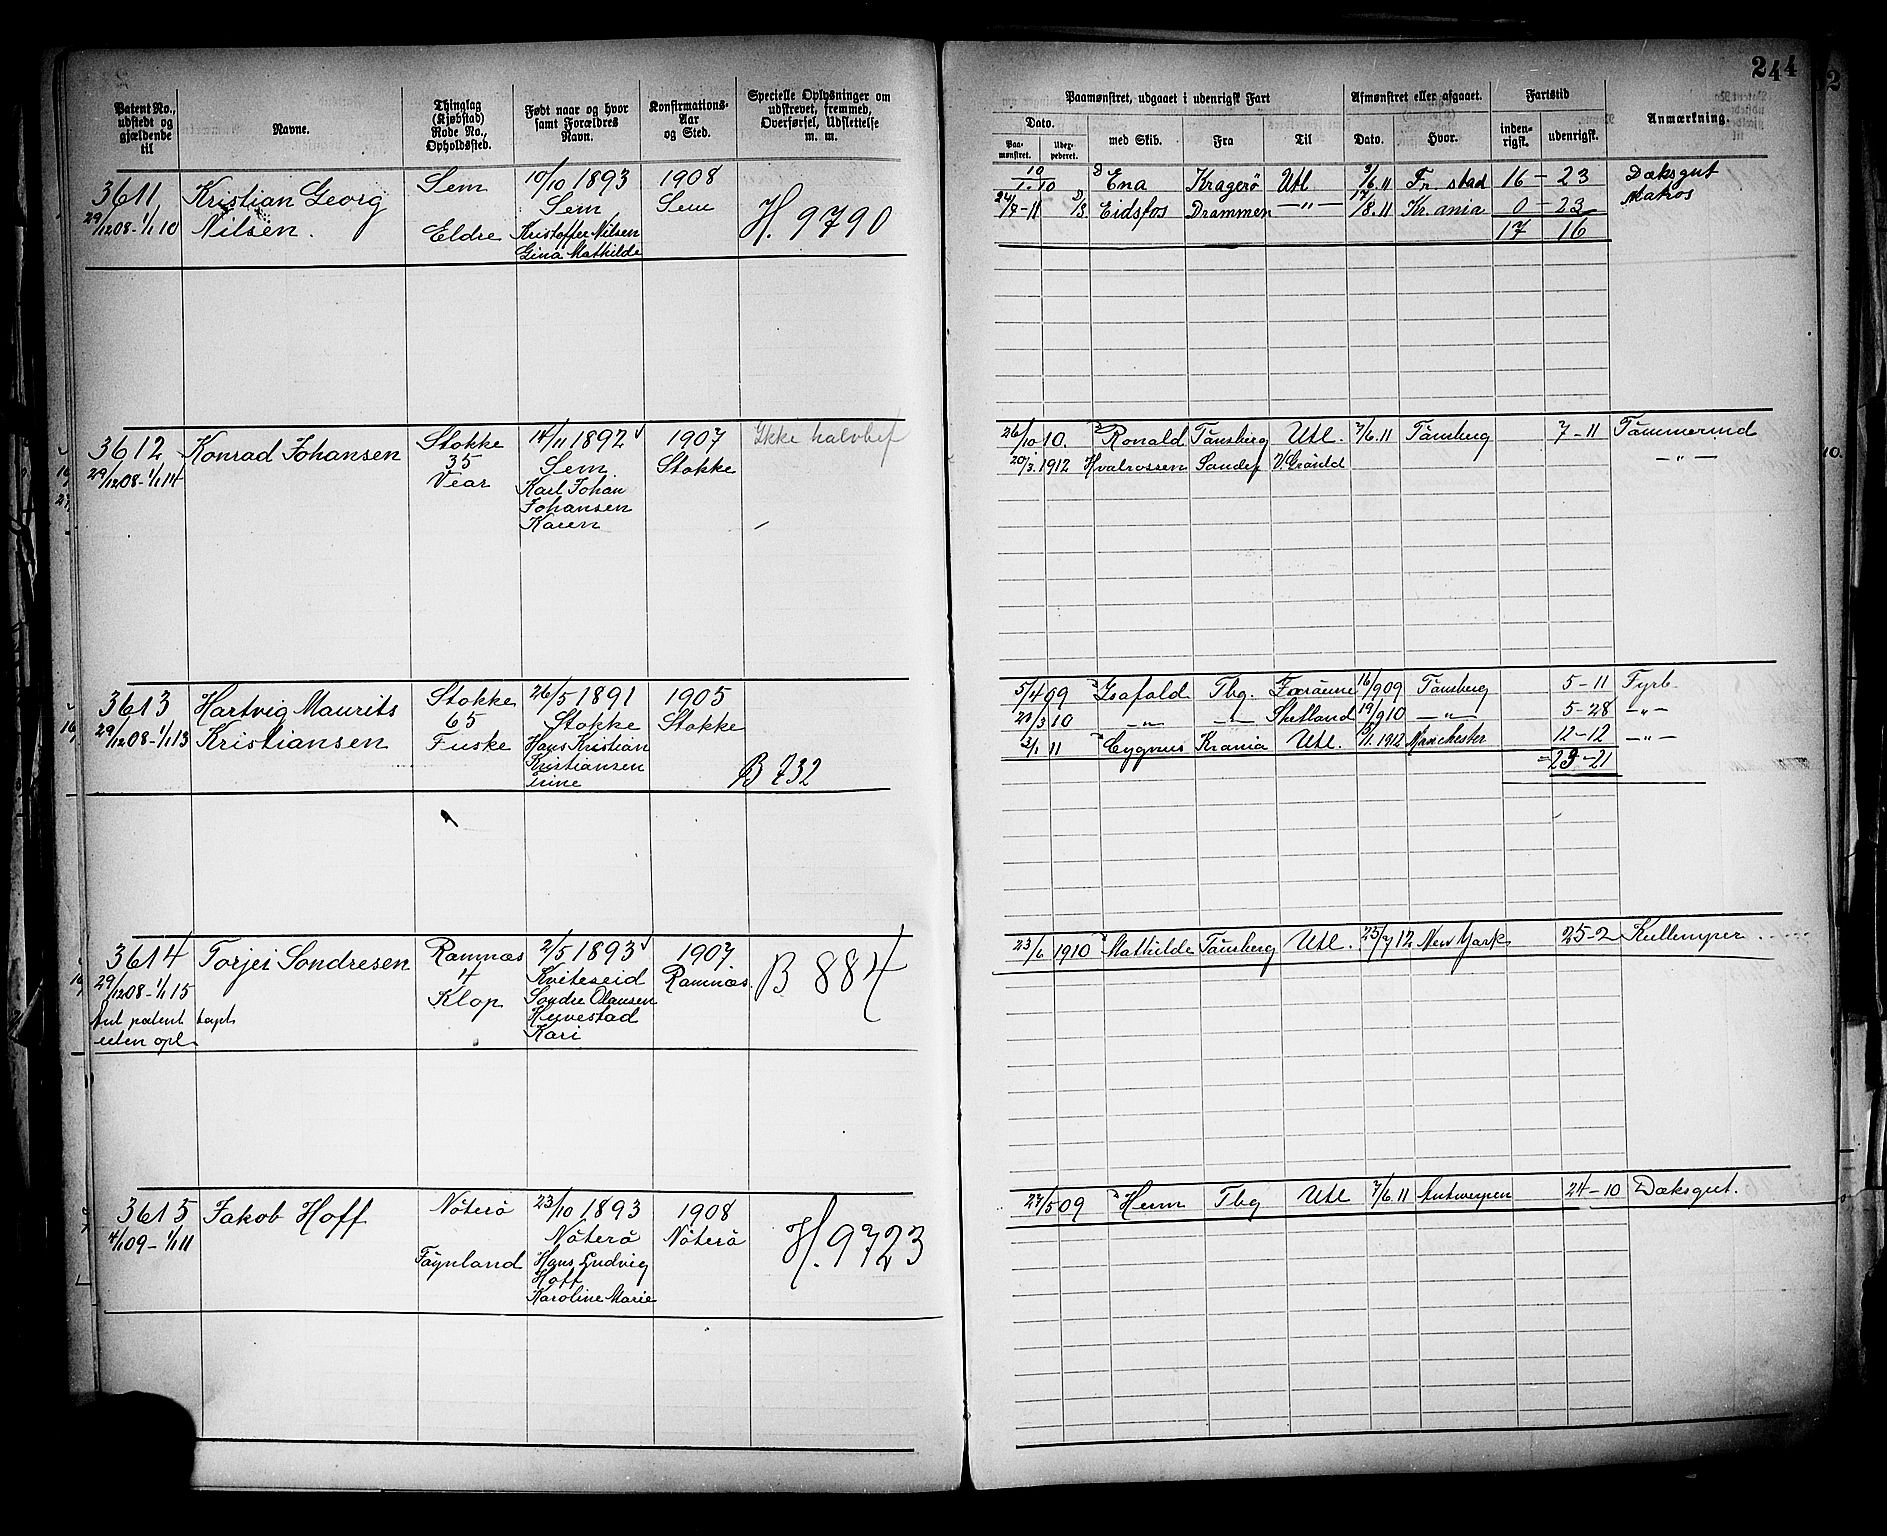 244
Patent No., udstedt og gjældende til
Navne.
Thinglag (Kjøbstad) Rode No., Opholdssted.
Født naar og hvor samt Forældres Navn.
Konfirmations-Aar og Sted.
Specielle Oplysninger om udstrevet, fremmed, Overførsel, Udslettelse m. m.
Paamønstret, udgaaet i udenrigsk Fart
Afmønstret eller afgaaet.
Fartstid
Anmærkning.
Dato.
Paa-mønstret.
med Skib.
Fra
Til
Dato.
Hvor.
inden-rigsk.
udenrigsk.
3611 Kristian Georg Sem 10/10 1893 1908
29/12 08-1/1 10 Nilsen. Eldre Sem Sem H. 9790
Kristoffer Nilsen
Gina Mathilde
10/1. 10 D Ena Kragerö Utl. 9/6 11 Fr. stad 16 - 23 Dæksgut
24/7-11 Eidsfos Drammen -„- 17/8.11 Kr.ania 0 - 23 Matros
17 16
3612 Konrad Johansen Stokke 14/11 1892 1907 Ikke halvbef
29/12 08-1/1 14 35 Sem Stokke
Vear Karl Johan
Johansen
Karen
26/10 10. Ronald Tönsberg Utl. 7/6.11 Tönsberg 7-11 Tömmermd
20/3.1912 Hvalrossen Sandef -„-
3613 Hartvig Maurits Stokke 26/5 1891 1905
29/12 08-1/1 13 Kristiansen 65 Stokke Stokke
Fuske Hans Kristian
Kristiansen
B 732
5/4 09 Isafold Tbg. Færöerne 16/9 09 Tönsberg 5-11 Fyrb.
/3 10 -„- -„- Shetland 19/9 10 -„- 5-28 -„-
3/1 11 Cygnus Krania Utl. /1. 1912 Manchester 12-12 -„-
-23-21
3614 Torjei Sondresen Ramnæs 2/5 1893 1907 B 884
29/12 08-1/1 15 4 Kviteseid Ramnæs.
Klop Sondre Olansen
Anl patent tapt
uten opl. Kari
23/6 1910 Mathilde Tönsberg Utl. 25/7 12 New York 25-2 Kullemper
3615 Jakob Hoff Nöterö 23/10 1893 1908
4/1 09-1/1 11 Nöterö Nöterö H. 9723
Föynland Hans Ludvig
Hoff
Karoline Marie
27/5 09 Heim Tbg Utl 7/6.11 Antwerpen 24-10 Dæksgut.